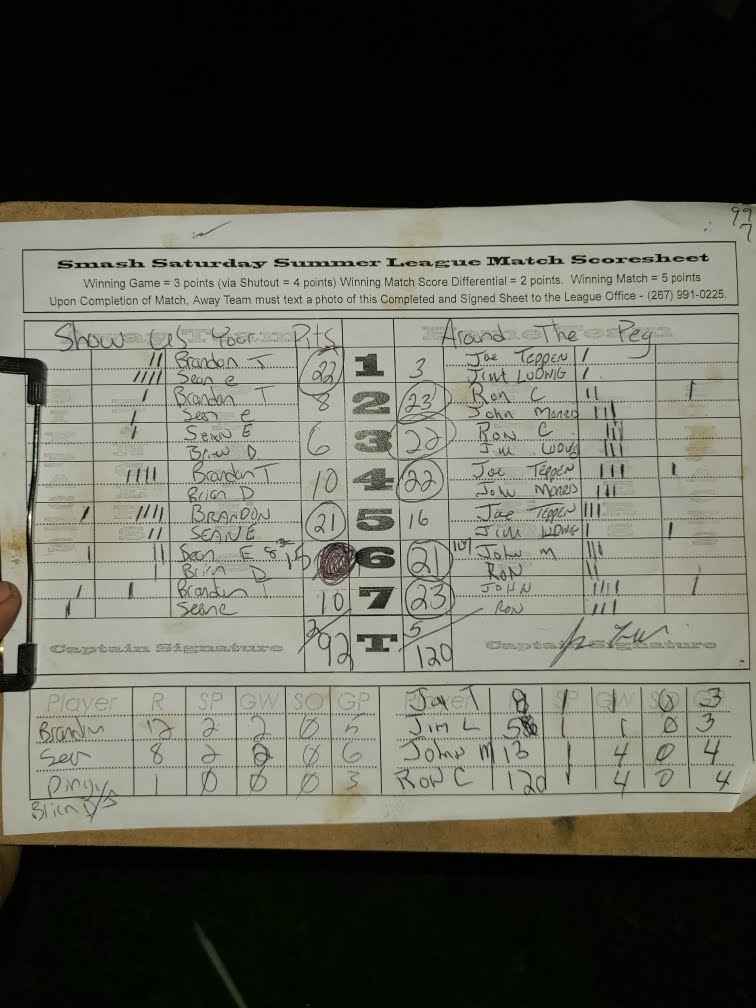 99
7
Smash Saturday Summer League Match Scoresheet
Winning Game = 3 points (via Shutout = 4 points) Winning Match Score Differential = 2 points. Winning Match = 5 points
Upon Completion of Match, Away Team must text a photo of this Completed and Signed Sheet to the League Office - (267) 991-0225.
Show Us Your Pits Around The Peg
Brandon T 22 1 3 Joe TEPPEN
Sean e Jim LUDWIG
Brandon T 8 2 23 Ron C
Sean e John Morris
SEAN E 6 3 22 RON C
Brian D Jim LUDWIG
Brandon T 10 4 22 Joe TEPPEN
Brian D John Morris
BRANDON 21 5 16 Joe TEPPEN
SEAN E Jim LUDWIG
Sean E 15 6 21 John M
Brian D RON
Brandon T 10 7 23 JOHN
Sean e RON
2 5
Captain Signature 92 T 120 Captain Signature
Player R SP GW SO GP Joe T 8 1 1 0 3
Brandon 12 2 2 0 5 Jim L 5 1 1 0 3
Sean 8 2 2 0 6 John M 13 1 4 0 4
1 0 0 0 3 RON C 12 1 4 0 4
Brian D